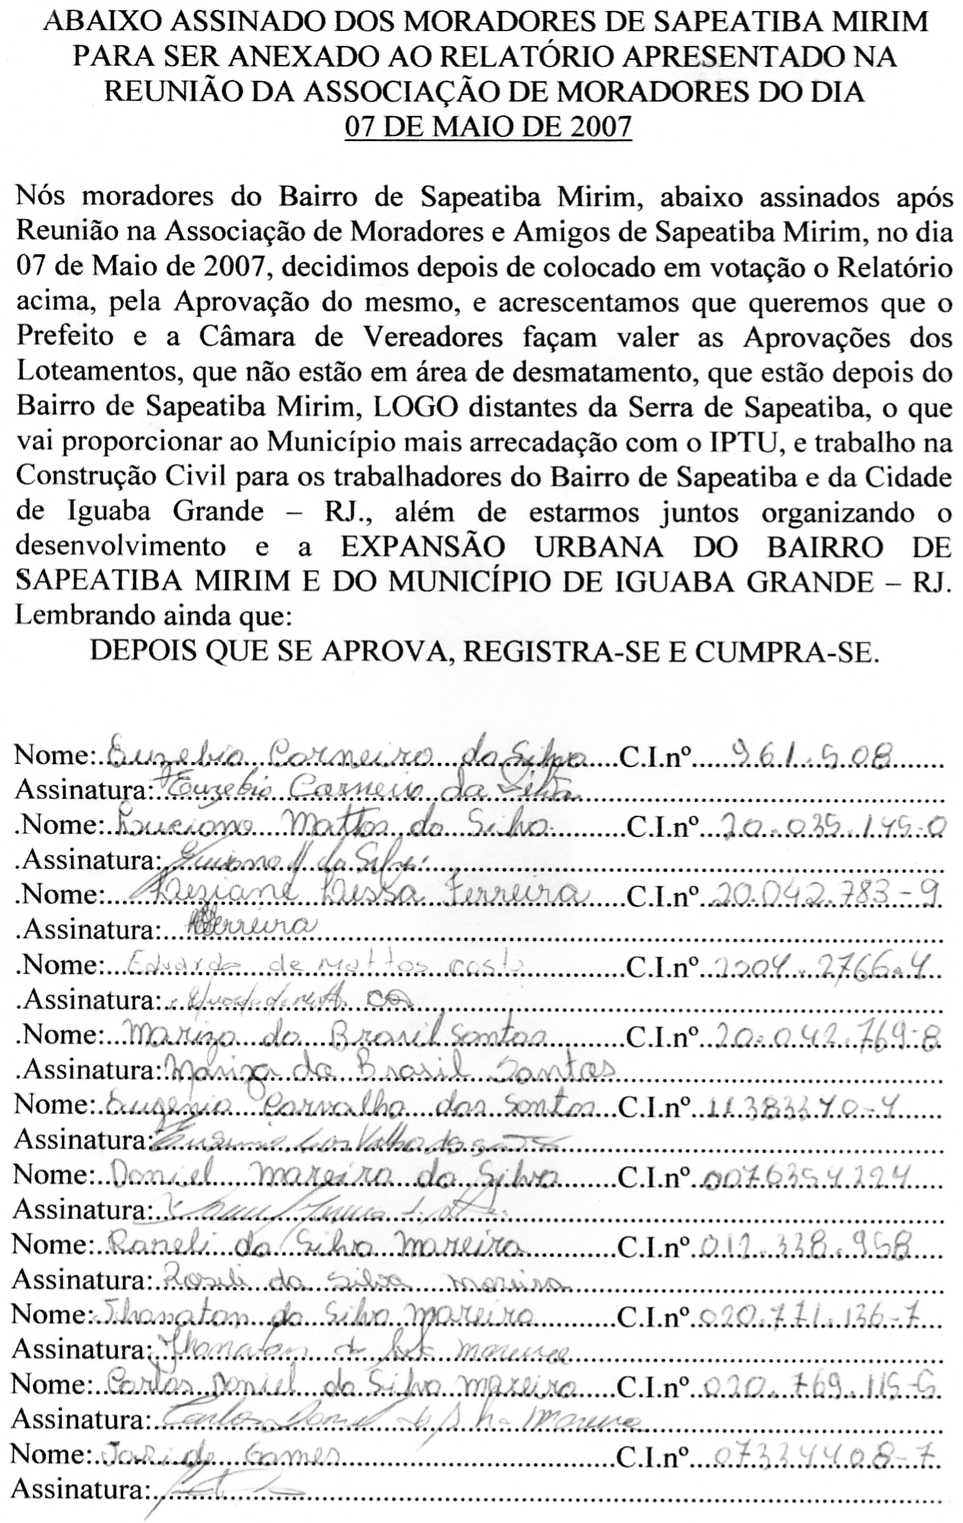 ABAIXO ASSINADO DOS MORADORES DE SAPEATIBA MIRIM
PARA SER ANEXADO AO RELATÓRIO APRESENTADO NA
REUNIÃO DA ASSOCIAÇÃO DE MORADORES DO DIA
07 DE MAIO DE 2007
Nós moradores do Bairro de Sapeatiba Mirim, abaixo assinados após
Reunião na Associação de Moradores e Amigos de Sapeatiba Mirim, no dia
07 de Maio de 2007, decidimos depois de colocado em votação o Relatório
acima, pela Aprovação do mesmo, e acrescentamos que queremos que o
Prefeito e a Câmara de Vereadores façam valer as Aprovações dos
Loteamentos, que não estão em área de desmatamento, que estão depois do
Bairro de Sapeatiba Mirim, LOGO distantes da Serra de Sapeatiba, o que
vai proporcionar ao Município mais arrecadação com o IPTU, e trabalho na
Construção Civil para os trabalhadores do Bairro de Sapeatiba e da Cidade
de Iguaba Grande – RJ., além de estarmos juntos organizando o
desenvolvimento e a EXPANSÃO URBANA DO BAIRRO DE
SAPEATIBA MIRIM E DO MUNICÍPIO DE IGUABA GRANDE – RJ.
Lembrando ainda que:
DEPOIS QUE SE APROVA, REGISTRA-SE E CUMPRA-SE.
Nome: Euzebio Carneiro da Silva C.I.nº 961.508
Assinatura: Euzebio Carneiro da Silva
.Nome: Luciano Mattos da Silva C.I.nº 20.035.145-0
.Assinatura: Luciano M da Silva
.Nome: Lessa Ferreira C.I.nº 20.042.783-9
.Assinatura: Ferreira
.Nome: Eduardo de Mattos Costa C.I.nº
.Assinatura:
.Nome: Mariza do Brasil Santos C.I.nº 20.042.769-8
.Assinatura: Mariza da Brasil Santos
Nome: Eugenio Carvalho dos Santos C.I.nº
Assinatura: Eugenio Carvalho dos
Nome: Daniel Mareira da Silva C.I.nº
Assinatura:
Nome: da Silva Mareira C.I.nº 012.338.958
Assinatura: Roseli da Silva moreira
Nome: Jhonatan da Silva Mareira C.I.nº 020.771.136-7
Assinatura: Jhonatan da Silva moreira
Nome: Carlos Daniel da Silva Mareira C.I.nº 020.769.115-
Assinatura: Carlos Daniel da Silva Moreira
Nome: Gomes C.I.nº 07334408-7
Assinatura: